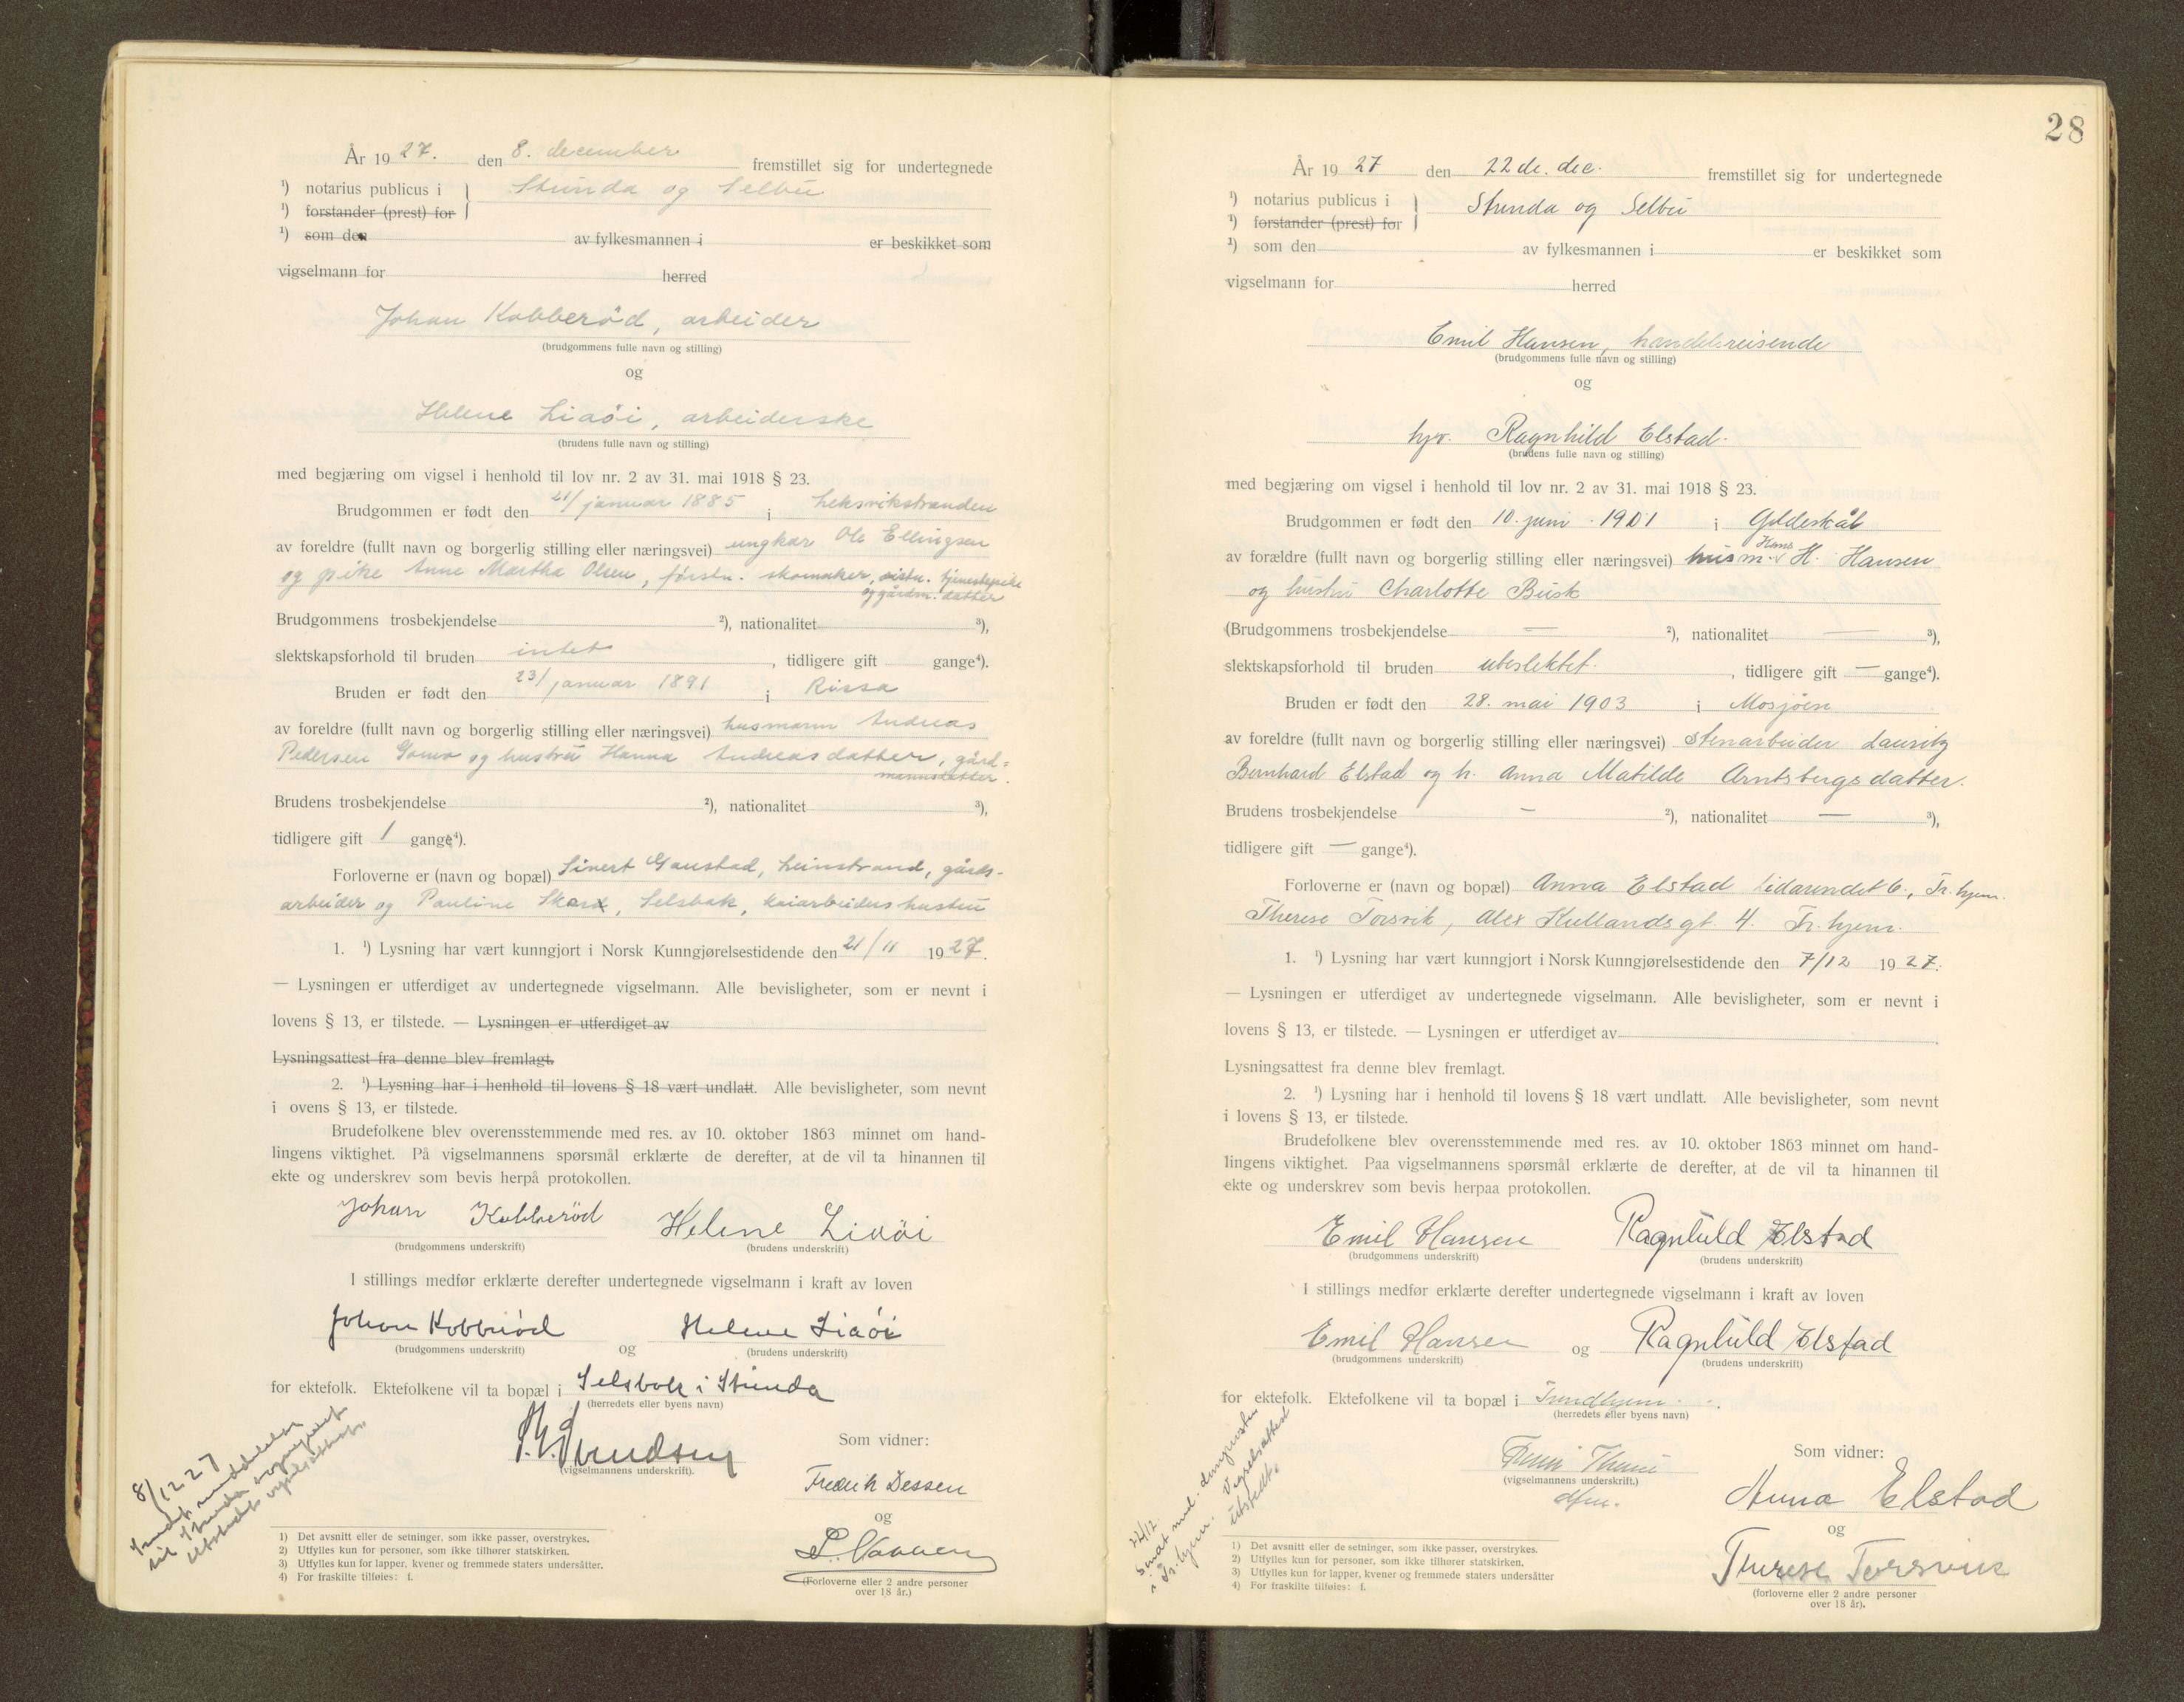 År 1927. den 8. december fremstillet sig for undertegnede
¹) notarius publicus i } Strinda og Selbu
¹) forstander (prest) for
¹) som den av fylkesmannen i er beskikket som
vigselmann for herred
Johan Kobberød, arbeider
(brudgommens fulle navn og stilling)
og
Helene Liaöi, arbeiderske
(brudens fulle navn og stilling)
med begjæring om vigsel i henhold til lov nr. 2 av 31. mai 1918 § 23.
Brudgommen er født den 21/ januar 1885 i Leksvikstranden
av foreldre (fullt navn og borgerlig stilling eller næringsvei) ungkar Ole Ellingsen
og pike Anne Martha Olsen, førstn. skomaker, sistn. tjenestepike
og gårdm. datter
Brudgommens trosbekjendelse ²), nationalitet ³),
slektskapsforhold til bruden intet, tidligere gift gange⁴).
Bruden er født den 23/ januar 1891 i Rissa
av foreldre (fullt navn og borgerlig stilling eller næringsvei) husmann Andreas
Pedersen og hustru Hanna Andreasdatter, gård-
mannsdatter.
Brudens trosbekjendelse ²), nationalitet ³),
tidligere gift 1 gange⁴).
Forloverne er (navn og bopæl) Sivert Gaustad, Leinstrand, gårds-
arbeider og Pauline, Selsbak, kaiarbeiders hustru
1. ¹) Lysning har vært kunngjort i Norsk Kunngjørelsestidende den 21/11 1927.
— Lysningen er utferdiget av undertegnede vigselmann. Alle bevisligheter, som er nevnt i
lovens § 13, er tilstede. — Lysningen er utferdiget av
Lysningsattest fra denne blev fremlagt.
2. ¹) Lysning har i henhold til lovens § 18 vært undlatt. Alle bevisligheter, som nevnt
i ovens § 13, er tilstede.
Brudefolkene blev overensstemmende med res. av 10. oktober 1863 minnet om hand-
lingens viktighet. På vigselmannens spørsmål erklærte de derefter, at de vil ta hinannen til
ekte og underskrev som bevis herpå protokollen.
Johan Kobberød Helene Liaöi
(brudgommens underskrift) (brudens underskrift)
I stillings medfør erklærte derefter undertegnede vigselmann i kraft av loven
Johan Kobberød og Helene Liaöi
(brudgommens underskrift) (brudens underskrift)
for ektefolk. Ektefolkene vil ta bopæl i Selsbak i Strinda
(herredets eller byens navn)
(vigselmannens underskrift).
Som vidner:
Fredrik Dessen
og
(Forloverne eller 2 andre personer
over 18 år.)
8/12 27
1) Det avsnitt eller de setninger, som ikke passer, overstrykes.
2) Utfylles kun for personer, som ikke tilhører statskirken.
3) Utfylles kun for lapper, kvener og fremmede staters undersåtter.
4) For fraskilte tilføies: f.
28
År 1927 den 22de. dec. fremstillet sig for undertegnede
¹) notarius publicus i } Strinda og Selbu
¹) forstander (prest) for
¹) som den av fylkesmannen i er beskikket som
vigselmann for herred
Emil Hansen, handelsreisende
(brudgommens fulle navn og stilling)
og
frk. Ragnhild Elstad.
(brudens fulle navn og stilling)
med begjæring om vigsel i henhold til lov nr. 2 av 31. mai 1918 § 23.
Brudgommen er født den 10. juni 1901 i Gildeskål
av forældre (fullt navn og borgerlig stilling eller næringsvei) husm. Hans H. Hansen
og hustru Charlotte Busk
(Brudgommens trosbekjendelse — ²), nationalitet — ³),
slektskapsforhold til bruden ubeslektet. , tidligere gift — gange⁴).
Bruden er født den 28. mai 1903 i Mosjøen
av foreldre (fullt navn og borgerlig stilling eller næringsvei) Stenarbeider Lauritz
Bernhard Elstad og h. Anna Matilde Arntsbergsdatter.
Brudens trosbekjendelse — ²), nationalitet — ³),
tidligere gift — gange⁴).
Forloverne er (navn og bopæl) Anna Elstad 6, Tr.hjem.
Therese Torsvik, Alex Kiellandsgt. 4. Tr.hjem.
1. ¹) Lysning har vært kunngjort i Norsk Kunngjørelsestidende den 7/12 1927.
— Lysningen er utferdiget av undertegnede vigselmann. Alle bevisligheter, som er nevnt i
lovens § 13, er tilstede. — Lysningen er utferdiget av
Lysningsattest fra denne blev fremlagt.
2. ¹) Lysning har i henhold til lovens § 18 vært undlatt. Alle bevisligheter, som nevnt
i lovens § 13, er tilstede.
Brudefolkene blev overensstemmende med res. av 10. oktober 1863 minnet om hand-
lingens viktighet. Paa vigselmannens spørsmål erklærte de derefter, at de vil ta hinannen til
ekte og underskrev som bevis herpaa protokollen.
Emil Hansen Ragnhild Elstad
(brudgommens underskrift) (brudens underskrift)
I stillings medfør erklærte derefter undertegnede vigselmann i kraft av loven
Emil Hansen og Ragnhild Elstad
(brudgommens underskrift) (brudens underskrift)
for ektefolk. Ektefolkene vil ta bopæl i Trondhjem.
(herredets eller byens navn)
(vigselmannens underskrift.)
dfm.
Som vidner:
Anna Elstad
og
Therese Torsvik
(forloverne eller 2 andre personer
over 18 år).
22/12.
Vigselsattest
utstedt.
1) Det avsnitt eller de setninger, som ikke passer, overstrykes.
2) Utfylles kun for personer, som ikke tilhører statskirken,
3) Utfylles kun for lapper, kvener og fremmede staters undersåtter
4) For fraskilte tilføies: f.